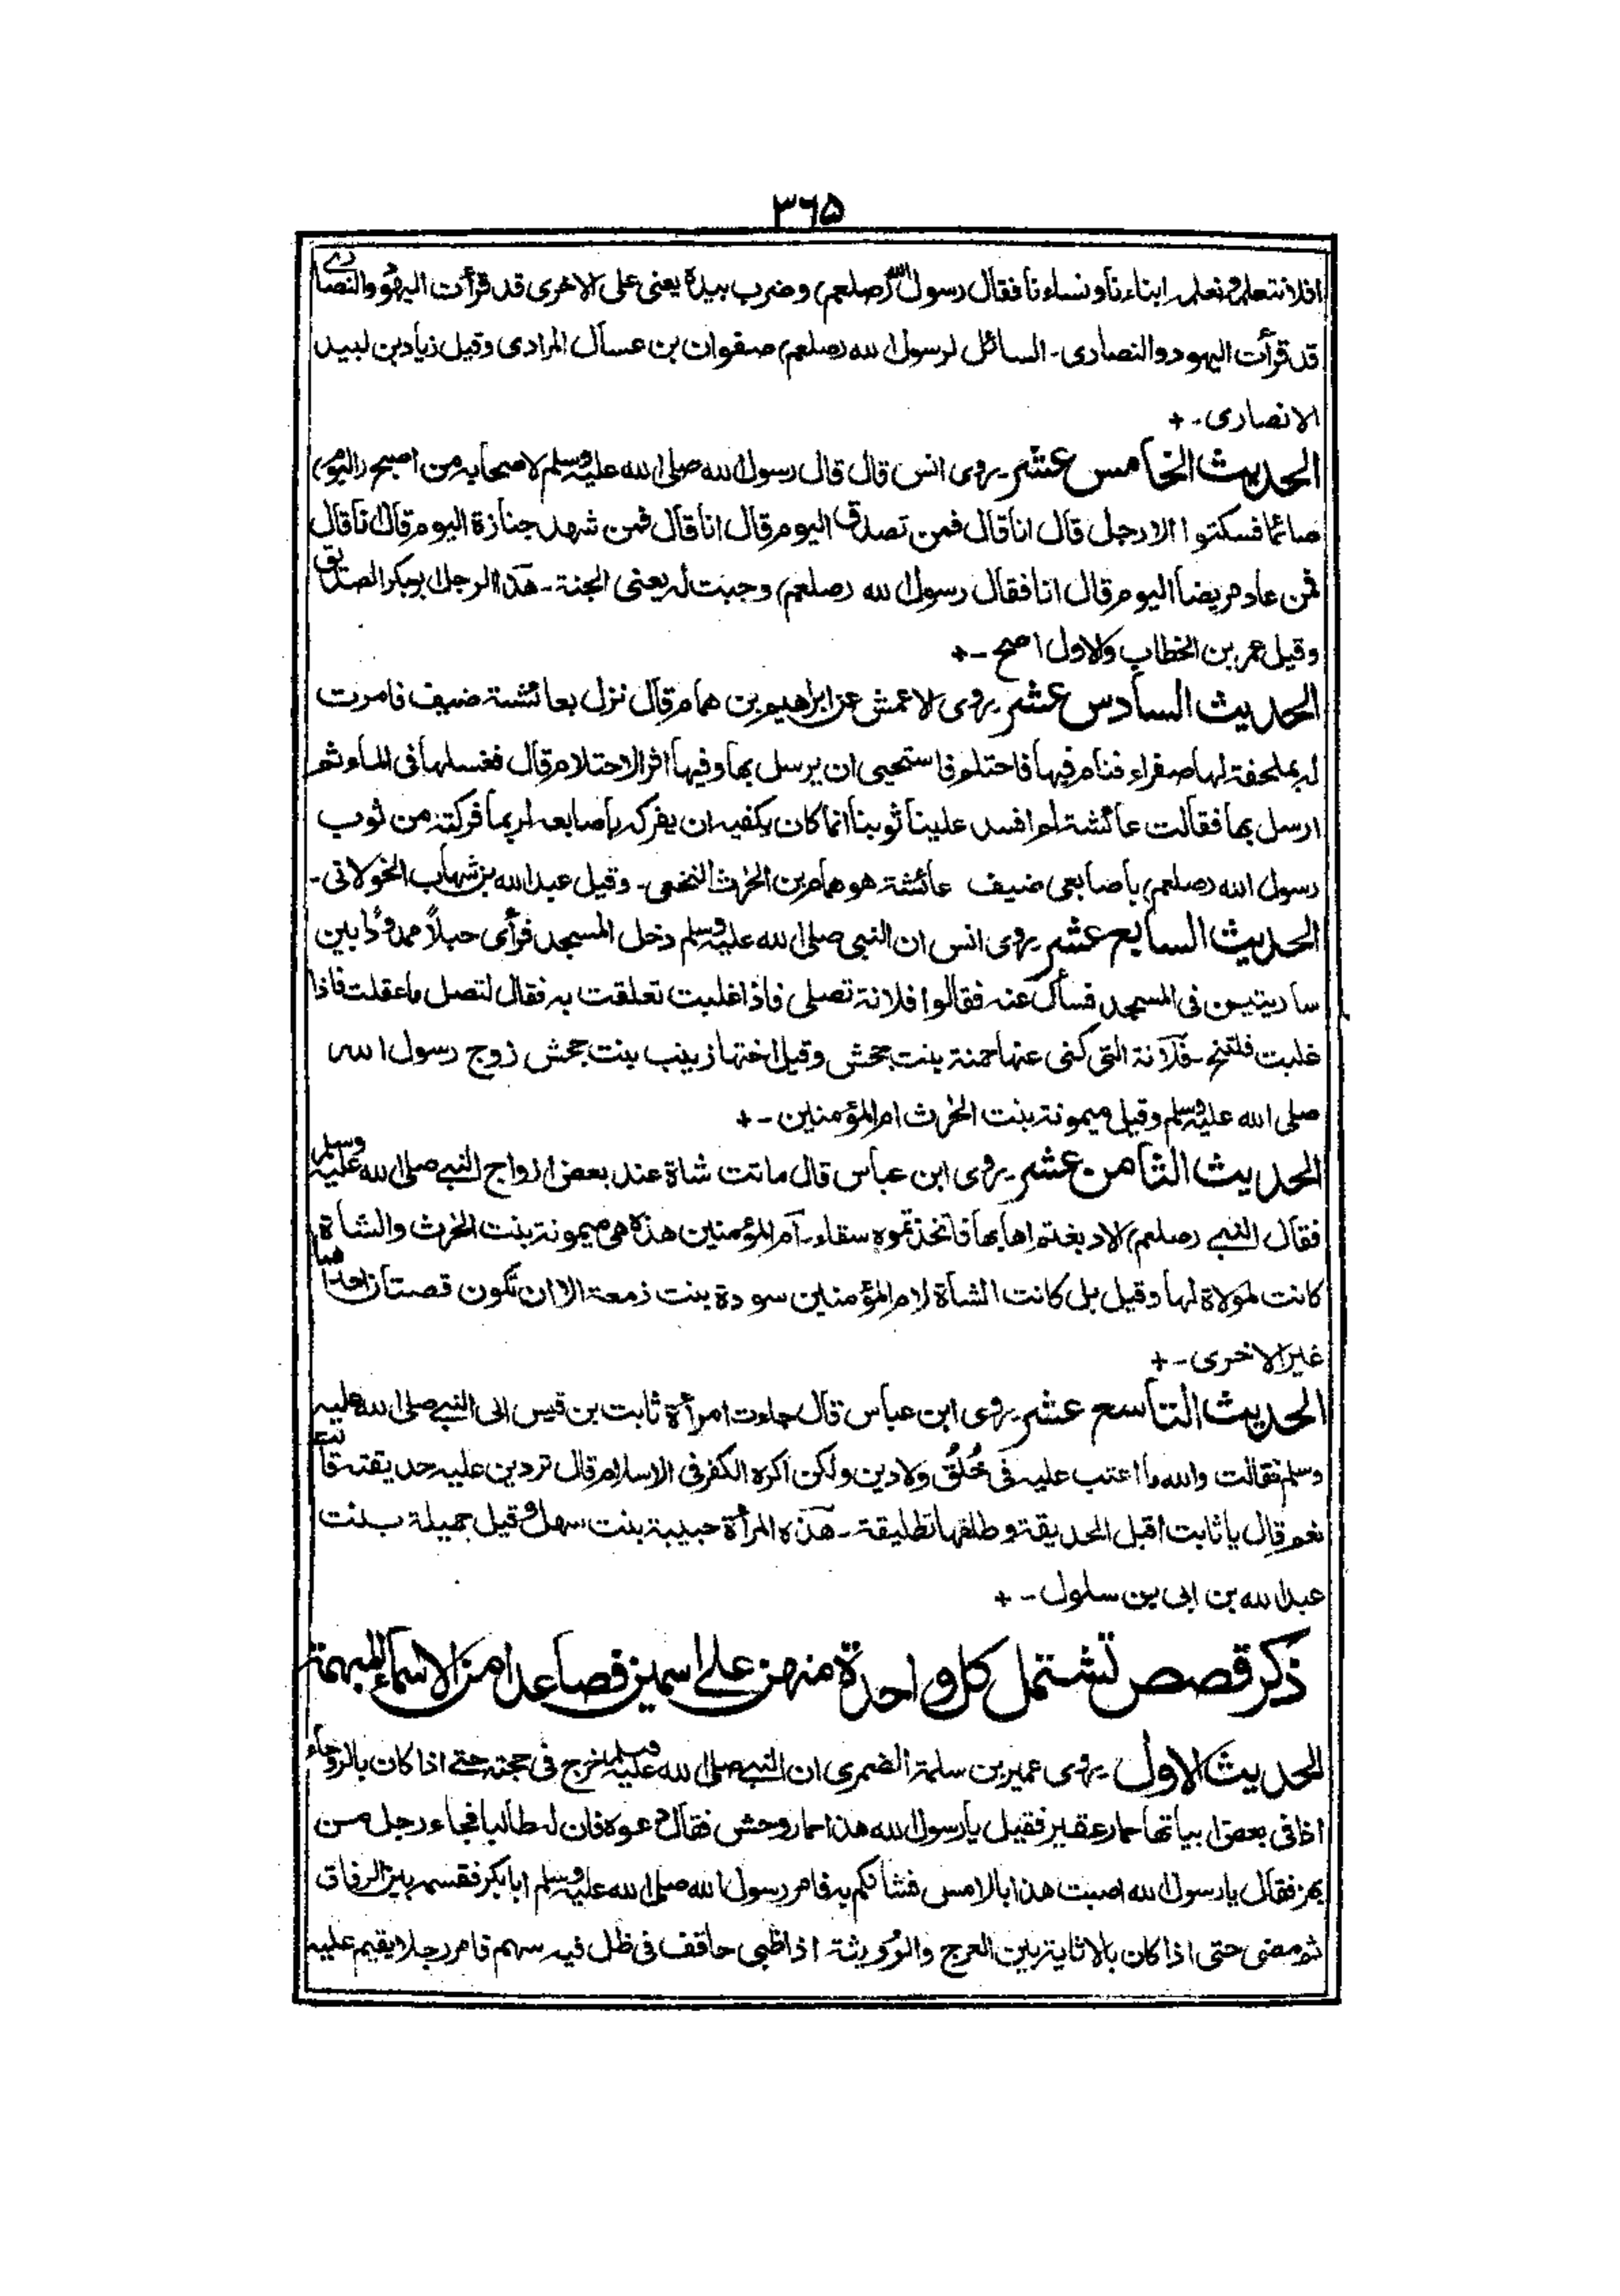 ٣٦٥
افلا نتعلم ونعلمه ابناءنا ونساءنا فقال رسول الله (صلعم) وضرب بيده يعنى على الاخرى قد قرأت اليهود والنصارى
قد قرأت اليهود والنصارى ـ السائل لرسول الله (صلعم) صفوان بن عسال المرادى وقيل زياد بن لبيد
الانصارى ـ +
الحديث الخامس عشر يروى انس قال قال رسول الله صلى الله عليه وسلم لاصحابه من اصبح (اليوم)
صائما فسكتوا الا رجل قال انا قال فمن تصدق اليوم قال انا قال فمن شهد جنازة اليوم قال انا قال
فمن عاد مريضا اليوم قال انا فقال رسول الله (صلعم) وجبت له يعنى الجنة ـ هذا الرجل ابو بكر الصديق
وقيل عمر بن الخطاب والاول اصح ـ +
الحديث السادس عشر يروى الاعمش عن ابراهيم بن همام قال نزل بعائشة ضيف فامرت
له بملحفة لها صفراء فنام فيها فاحتلم فاستحيى ان يرسل بها وفيها اثر الاحتلام قال فغسلها فى الماء ثم
ارسل بها فقالت عائشة لم افسد علينا ثوبنا انما كان يكفيه ان يفركه بأصابعه لربما فركته من ثوب
رسول الله (صلعم) بأصابعى ضيف عائشة هو همام بن الحرث النخعى ـ وقيل عبد الله بن شهاب الخولانى ـ
الحديث السابع عشر يروى انس ان النبى صلى الله عليه وسلم دخل المسجد فرأى حبلاً ممدودًا بين
ساريتين فى المسجد فسأل عنه فقالوا فلانة تصلى فاذا غلبت تعلقت به فقال لتصل ما عقلت فاذا
غلبت فلتنم ـ فلانة التى كنى عنها حمنة بنت جحش وقيل اختها زينب بنت جحش زوج رسول الله
صلى الله عليه وسلم وقيل ميمونة بنت الحرث ام المؤمنين ـ +
الحديث الثامن عشر يروى ابن عباس قال ماتت شاة عند بعض ازواج النبى صلى الله عليه وسلم
فقال النبى (صلعم) الا دبغتم اهابها فاتخذتموه سقاء ـ ام المؤمنين هذه هى ميمونة بنت الحرث والشاة
كانت لمولاة لها وقيل بل كانت الشاة لام المؤمنين سودة بنت زمعة الا ان تكون قصتان احداهما
غير الاخرى ـ +
الحديث التاسع عشر يروى ابن عباس قال جاءت امرأة ثابت بن قيس الى النبى صلى الله عليه
وسلم فقالت والله ما اعتب عليه فى خُلُق ولا دين ولكن اكره الكفر فى الاسلام قال تردين عليه حديقته قالت
نعم قال يا ثابت اقبل الحديقة وطلقها تطليقة ـ هذه المرأة حبيبة بنت سهل وقيل جميلة بنت
عبد الله بن ابى بن سلول ـ +
ذكر قصص تشتمل كل واحدة منهن على اسمين فصاعدا من الاسماء المبهمة
الحديث الاول يروى عمير بن سلمة الضمرى ان النبى صلى الله عليه وسلم خرج فى حجته حتى اذا كان بالروحاء
اذا فى بعض ابياتها حمار عقير فقيل يا رسول الله هذا حمار وحش فقال دعوه فان له طالبا فجاء رجل من
بهز فقال يا رسول الله اصبت هذا بالامس فشانكم به فامر رسول الله صلى الله عليه وسلم ابا بكر فقسمه بين الرفاق
ثم مضى حتى اذا كان بالاثاية بين العرج والرويثة اذا ظبى حاقف فى ظل فيه سهم فامر رجلا يقيم عليه